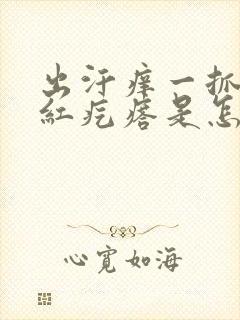 出汗痒一抓
红疙瘩是怎
心宽如海